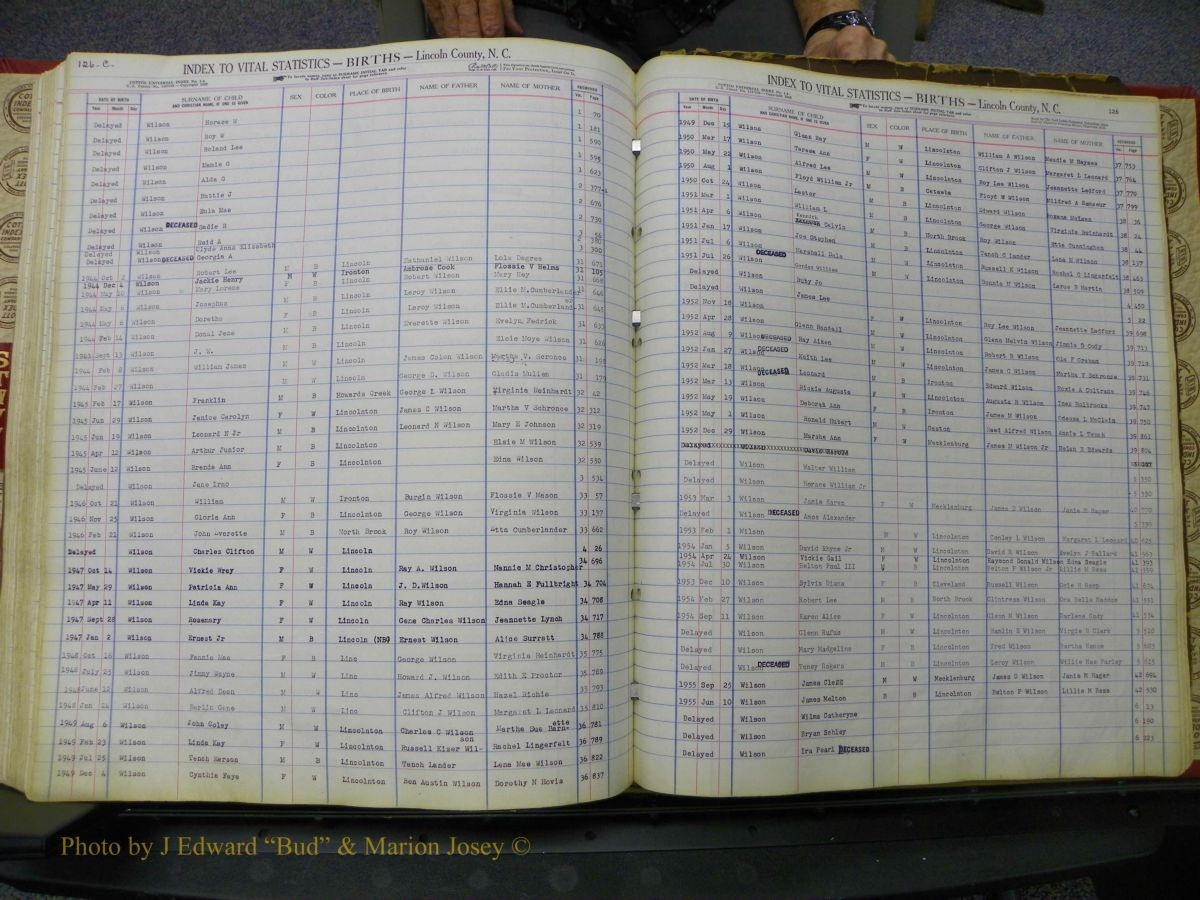 126-C.
INDEX TO VITAL STATISTICS — BIRTHS — Lincoln County, N. C.
DATE OF BIRTH
Year Month Day
SURNAME OF CHILD
AND CHRISTIAN NAME, IF ONE IS GIVEN
SEX COLOR PLACE OF BIRTH NAME OF FATHER NAME OF MOTHER RECORDED
Vol. Page
Delayed Wilson Horace W 1 70
Delayed Wilson Roy W 1 181
Delayed Wilson Roland Lee 1 590
Delayed Wilson Mamie G 1 595
Delayed Wilson Alda G 1 623
Delayed Wilson Hattie J 2 377
Delayed Wilson Eula Mae 2 676
Delayed Wilson DECEASED Sadie B 2 730
Delayed Wilson Reid A
Delayed Wilson Clyde Anna Elizabeth
Delayed Wilson DECEASED Georgia A 3 300
1944 Oct 2 Wilson Robert Lee M B Lincoln Nathaniel Wilson Lola Degree 31 671
1944 Dec 4 Wilson Jackie Henry M W Ironton Ambrose Cook Flossie V Helms 31 105
1944 May 10 Wilson Mary Lorenz F B Lincoln Robert Wilson Mary Hay 31 668
1944 May 6 Wilson Josephus M B Lincoln Leroy Wilson Ellie M.Cumberlander 31 646
1944 May 6 Wilson Doretha F B Lincoln Leroy Wilson Ellie M.Cumberland 31 645
1944 Feb 14 Wilson Donal Jene M B Lincoln Everette Wilson Evelyn Fedrick 31 633
1943 Sept 13 Wilson J. W. M B Lincoln Elsie Moye Wilson 31 626
1944 Feb 8 Wilson William James M W Lincoln James Colon Wilson Martha V. Scronce 31
1944 Feb 27 Wilson M W Lincoln George D. Wilson Gladis Mullen 31 170
1945 Feb 17 Wilson Franklin M B Howards Creek George Z Wilson Virginia Reinhardt 32 42
1945 Jun 29 Wilson Janice Carolyn F W Lincolnton James C Wilson Martha V Schronce 32 312
1945 Jun 19 Wilson Leonard N Jr M B Lincolnton Leonard N Wilson Mary E Johnson 32 319
1945 Apr 12 Wilson Arthur Junior M B Lincolnton Elsie M Wilson 32 539
1945 June 12 Wilson Brenda Ann F B Lincolnton Edna Wilson 32 550
Delayed Wilson Jane Irmo 3 534
1946 Oct 21 Wilson William M W Ironton Burgin Wilson Flossie V Mason 33 57
1946 Nov 25 Wilson Gloria Ann F B Lincolnton George Wilson Virginia Wilson 33 137
1946 Feb 21 Wilson John Averette M B North Brook Roy Wilson Etta Cumberlander 33 662
Delayed Wilson Charles Clifton M W Lincoln 4 26
1947 Oct 14 Wilson Vickie Wrey F W Lincoln Ray A. Wilson Mannie M Christopher 34 696
1947 May 29 Wilson Patricia Ann F W Lincoln J. D.Wilson Hannah E Fullbright 34 704
1947 Apr 11 Wilson Linda Kay F W Lincoln Ray Wilson Edna Seagle 34 708
1947 Sept 28 Wilson Rosemary F W Lincoln Gene Charles Wilson Jeannette Lynch 34 717
1947 Jan 2 Wilson Ernest Jr M B Lincoln (NB) Ernest Wilson Alice Surratt 34 788
1948 Oct 16 Wilson Fannie Mae F B Linc George Wilson Virginia Reinhardt 35 775
1948 July 25 Wilson Jimmy Wayne M W Linc Howard J. Wilson Edith E Proctor 35 789
1948 June 12 Wilson Alfred Deen M W Linc James Alfred Wilson Hazel Richie 35 793
1948 Jan 24 Wilson Marlin Gene M W Linc Clifton J Wilson Margaret L Leonard 35 810
1949 Aug 6 Wilson John Coley M W Lincolnton Charles C Wilson Martha Sue Barn-ette 36 781
1949 Feb 23 Wilson Linda Kay F W Lincolnton Russell Kiser Wil-son Rachel Lingerfelt 36 789
1949 Jul 25 Wilson Tench Kerson M B Lincolnton Tench Lander Lena Mae Wilson 36 822
1949 Dec 4 Wilson Cynthia Faye F W Lincolnton Ben Austin Wilson Dorothy N Hovis 36 837
INDEX TO VITAL STATISTICS — BIRTHS — Lincoln County, N. C. 126
DATE OF BIRTH
Year Month Day
SURNAME OF CHILD
AND CHRISTIAN NAME, IF ONE IS GIVEN
SEX COLOR PLACE OF BIRTH NAME OF FATHER NAME OF MOTHER RECORDED
Vol. Page
1949 Dec 15 Wilson Glenn Ray M W Lincolnton William A Wilson Maudie M Haynes 37 753
1950 Mar 17 Wilson Teresa Ann F W Lincolnton Clifton J Wilson Margaret L Leonard 37 761
1950 May 22 Wilson Alfred Lee M B Lincolnton Roy Lee Wilson Jeannette Ledford 37 770
1950 Aug 1 Wilson Floyd William Jr M B Catawba Floyd W Wilson Mildred A Ramseur 37 799
1950 Oct 24 Wilson Lester M B Lincolnton Edward Wilson Roxana McLean 38 36
1951 Mar 1 Wilson William L M B Lincolnton George Wilson Virginia Reinhardt 38 24
1951 Apr 6 Wilson Kennith Calvin M B North Brook Roy Wilson Etta Cunningham 38 44
1951 Jan 17 Wilson Joe Stephed M B Lincolnton Tench C Lander Lena M Wilson 38 137
1951 Jul 6 Wilson Marshall Hula M W Lincolnton Russell K Wilson Rachel C Lingerfelt 38 463
1951 Jul 26 Wilson DECEASED Gordon William M W Lincolnton Bonnie M Wilson Larue B Martin 38 509
Delayed Wilson Ruby Jo 4 450
Delayed Wilson James Lee 5 22
1952 Nov 18 Wilson F W Lincolnton Roy Lee Wilson Jeannette Ledford 39 698
1952 Apr 28 Wilson Glenn Randall M W Lincolnton Glenn Melvin Wilson Jinnie B Cody 39 713
1952 Aug 9 Wilson DECEASED Ray Aiken M W Lincolnton Robert B Wilson Ola F Graham 39
1952 Jan 27 Wilson DECEASED Keith Lee M W Lincolnton James C Wilson Martha V Schronce 39 731
1952 Mar 18 Wilson DECEASED Leonard M B Ironton Edward Wilson Roxie A Coltrane 39 746
1952 Mar 13 Wilson Rickie Augusta M W Lincolnton Augusta B Wilson Inez Holbrooks 39 747
1952 May 19 Wilson Deborah Ann F B Ironton James M Wilson Odessa L McClain 39 750
1952 May 1 Wilson Ronald Hubert M W Gaston Reed Alfred Wilson Annie L Tench 39 861
1952 Dec 29 Wilson Marsha Ann F W Mecklenburg James M Wilson Jr Helen K Edwards 39 804
Delayed Wilson
Delayed Wilson Walter William 5 350
Delayed Wilson Horace William Jr
1953 Mar 3 Wilson Janie Karen F W Mecklenburg James D Wilson Janie M Hager 40 770
Delayed Wilson DECEASED Amos Alexander 5 390
1953 Feb 1 Wilson M W Lincolnton Conley L Wilson Margaret L Leonard 40 625
1954 Jan 5 Wilson David Rhyne Jr M W Lincolnton David R Wilson Evelyn J Ballard 41
1954 Apr 24 Wilson Vickie Gail F W Lincolnton Raymond Donald Wilson Edna Seagle 41 393
1954 Jul 30 Wilson Belton Paul III M B Lincolnton Belton P Wilson Jr Lillie M Ross 41
1953 Dec 10 Wilson Sylvia Diana F B Cleveland Russell Wilson 41 674
1954 Feb 27 Wilson Robert Lee M B North Brook Clintress Wilson Ora Belle Maddox 41 531
1954 Sep 11 Wilson Karen Alice F W Lincolnton Glenn M Wilson Darlene Cody 41 534
Delayed Wilson Glenn Rufus M W Lincolnton Hamlin E Wilson Virgie B Clark 3 510
Delayed Wilson Mary Madgelina F B Lincolnton Fred Wilson Bertha Hance 3 603
Delayed Wilson DECEASED Toney Rogers M B Lincolnton Leroy Wilson Willie Mae Farley 3 615
1955 Sep 25 Wilson James Clegg M W Mecklenburg James D Wilson Janie M Hager 42 694
1955 Jun 10 Wilson James Melton B B Lincolnton Belton P Wilson Lillie M Ross 42 530
Delayed Wilson Wilma Catheryne 6 13
Delayed Wilson Bryan Schley 6 190
Delayed Wilson Ira Pearl DECEASED 6 223
Photo by J Edward “Bud” & Marion Josey ©